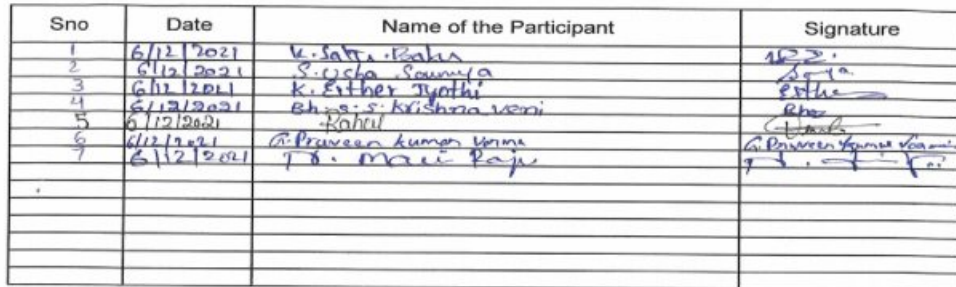 Sno Date Name of the Participant Signature
1 6/12/2021 K. Satti Babu
2 6/12/2021 S. Usha Sowmya
3 6/12/2021 K. Esther Jyothi Esther
4 6/12/2021 Bh. S. S. Krishna Veni
5 6/12/2021 Rahul
6 6/12/2021 G. Praveen Kumar Varma G. Praveen Kumar Varma
7 6/12/2021 Raju